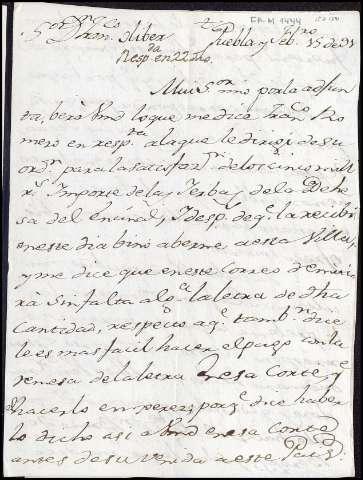 Sor Dn Franco Sliber
FA-M 1444
Puebla y Febro 15 de 31
Respda en 22 dho
Mui Sor mio por la adjun
ta, bera Vmd lo que me dice Franco Ro
mero en respta a la que le diriji de su
ordn para la satisfazn de los cinco mil
rs Importe de las Yerbas de la Dehe
sa del Encinal, I despues de qe la recibi
en este dia bino a berme a esta Villa,
y me dice que en este correo remiti
rà sin falta la letra de dha
Cantidad, respecto a qe tambn dice
le es mas facil hacer el pago con la
remesa de la letra en esa Corte qe
hacerlo en perez; porqe dice haber
lo dicho asi a Vmd en esa Corte
antes de su venida a este Pais;